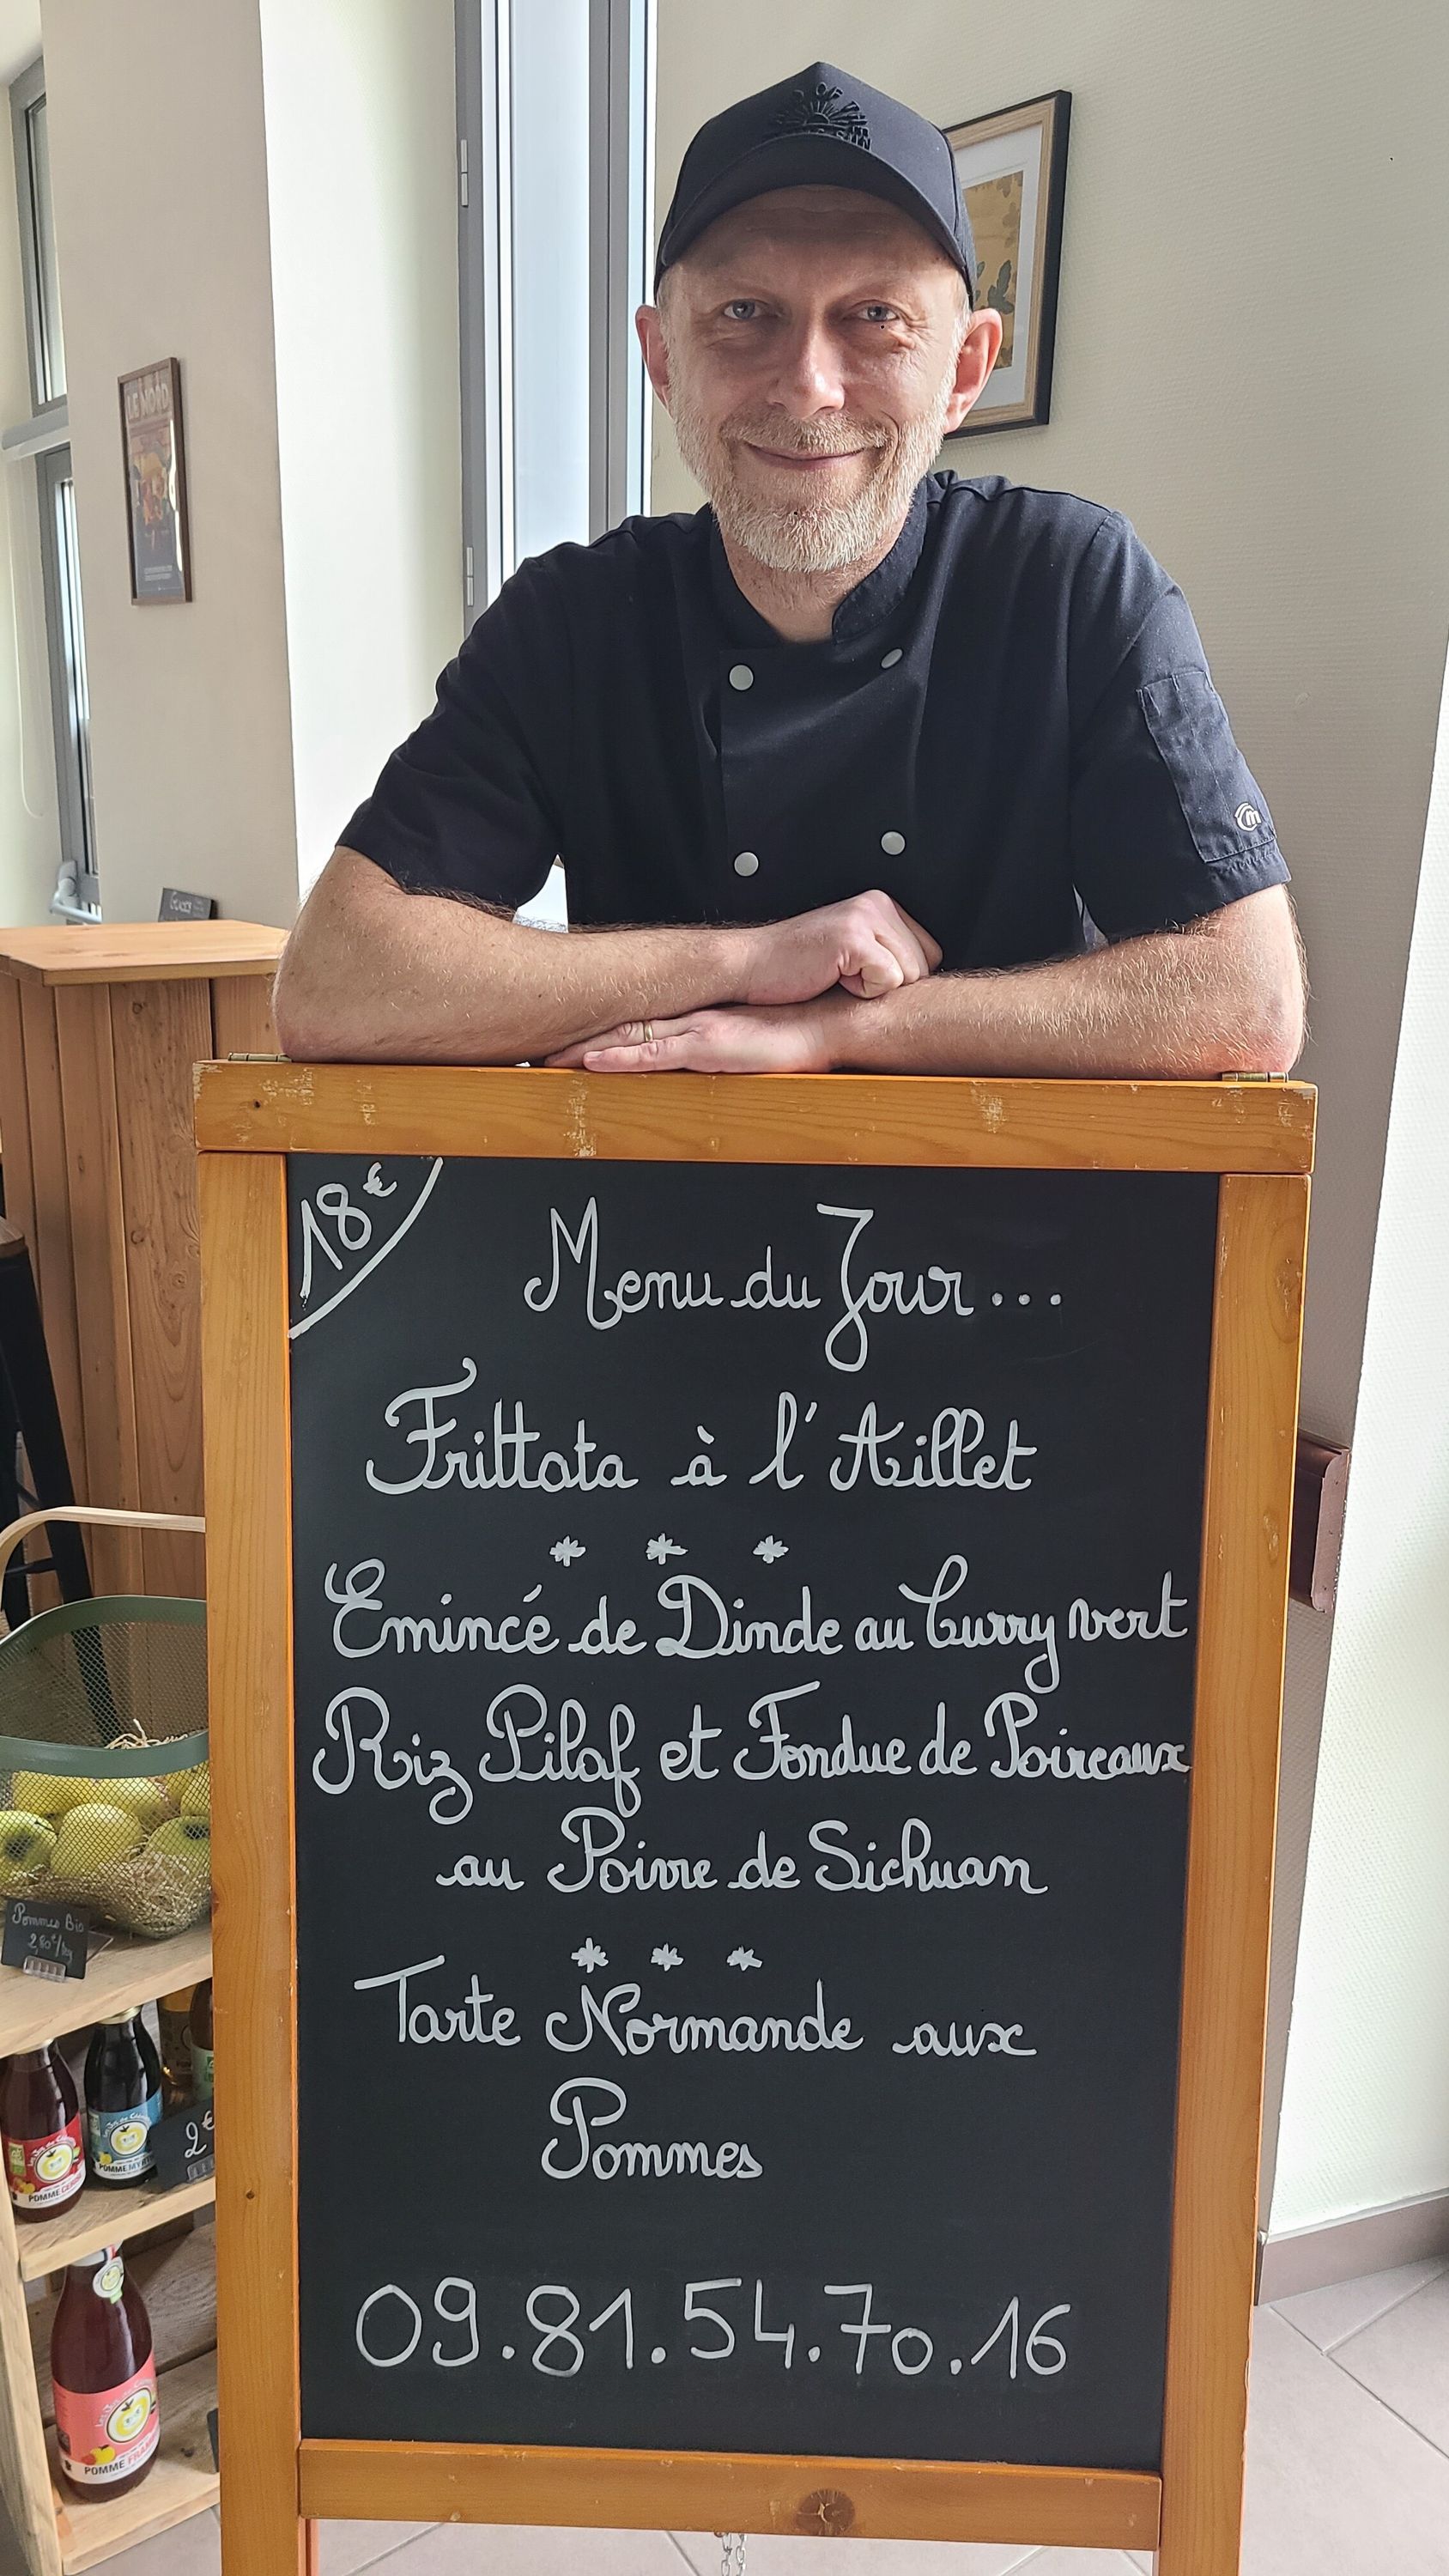 LE NORD
18€
Menu du Jour...
Frittata à l'Aillet
* * *
Emincé de Dinde au Curry vert
Riz Pilaf et Fondue de Poireaux
au Poivre de Sichuan
* * *
Tarte Normande aux
Pommes
09.81.54.70.16
Pommes Bio
2,80€/kg
2€
POMME
POMME
POMME